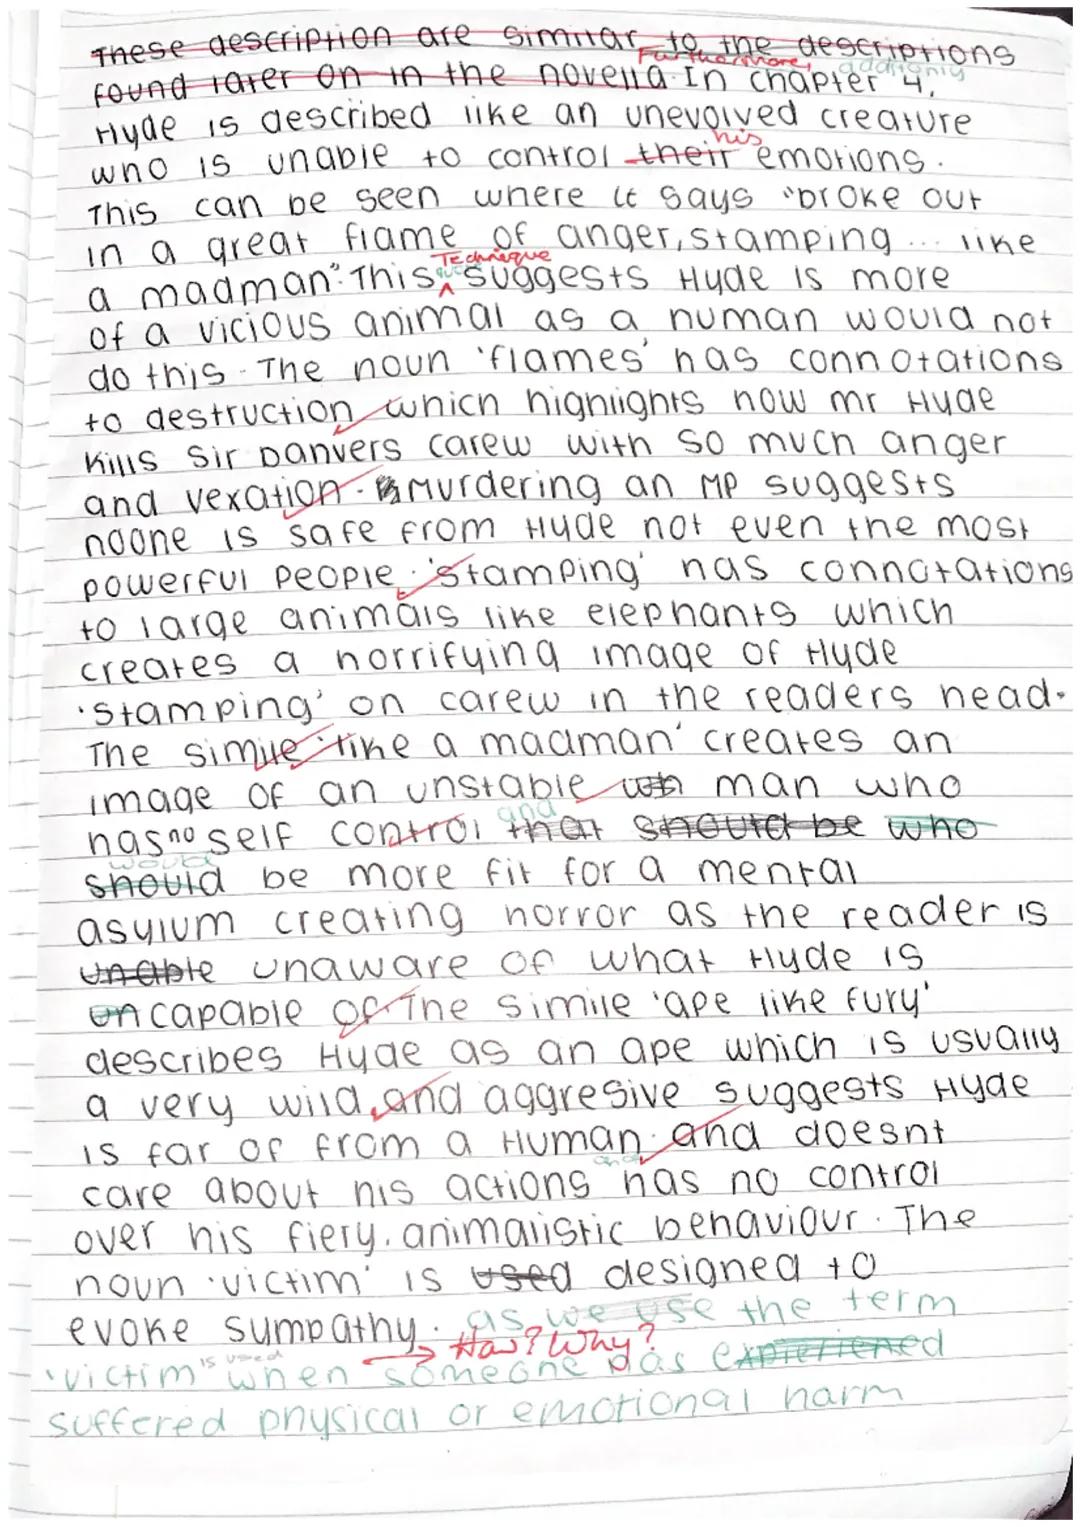 These description are similar to the descriptions
Furthermore, additionly
found later on in the novella. In chapter 4,
Hyde is described like an unevolved creature
his
who is unable to control their emotions.
This can be seen where it says "broke out
in a great flame of anger, stamping ... like
Technique
a madman". This suggests Hyde is more
of a vicious animal as a human would not
do this. The noun 'flames' has connotations
to destruction which highlights how Mr Hyde
kills Sir Danvers Carew with so much anger
and vexation. Murdering an MP suggests
noone is safe from Hyde not even the most
powerful people. 'stamping' has connotations
to large animals like elephants which
creates a horrifying image of Hyde
'stamping' on carew in the readers head.
The simile 'like a madman' creates an
image of an unstable man who
and
has no self control that should be who
would
should be more fit for a mental
asylum creating horror as the reader is
unable unaware of what Hyde is
uncapable of. The simile 'ape like fury'
describes Hyde as an ape which is usually
a very wild, and aggresive suggests Hyde
is far of from a Human. and doesnt
and
care about his actions has no control
over his fiery. animalistic behaviour. The
noun 'victim' is used designed to
evoke sympathy. as we use the term
How? Why?
is used
'victim' when someone has experiened
suffered physical or emotional harm